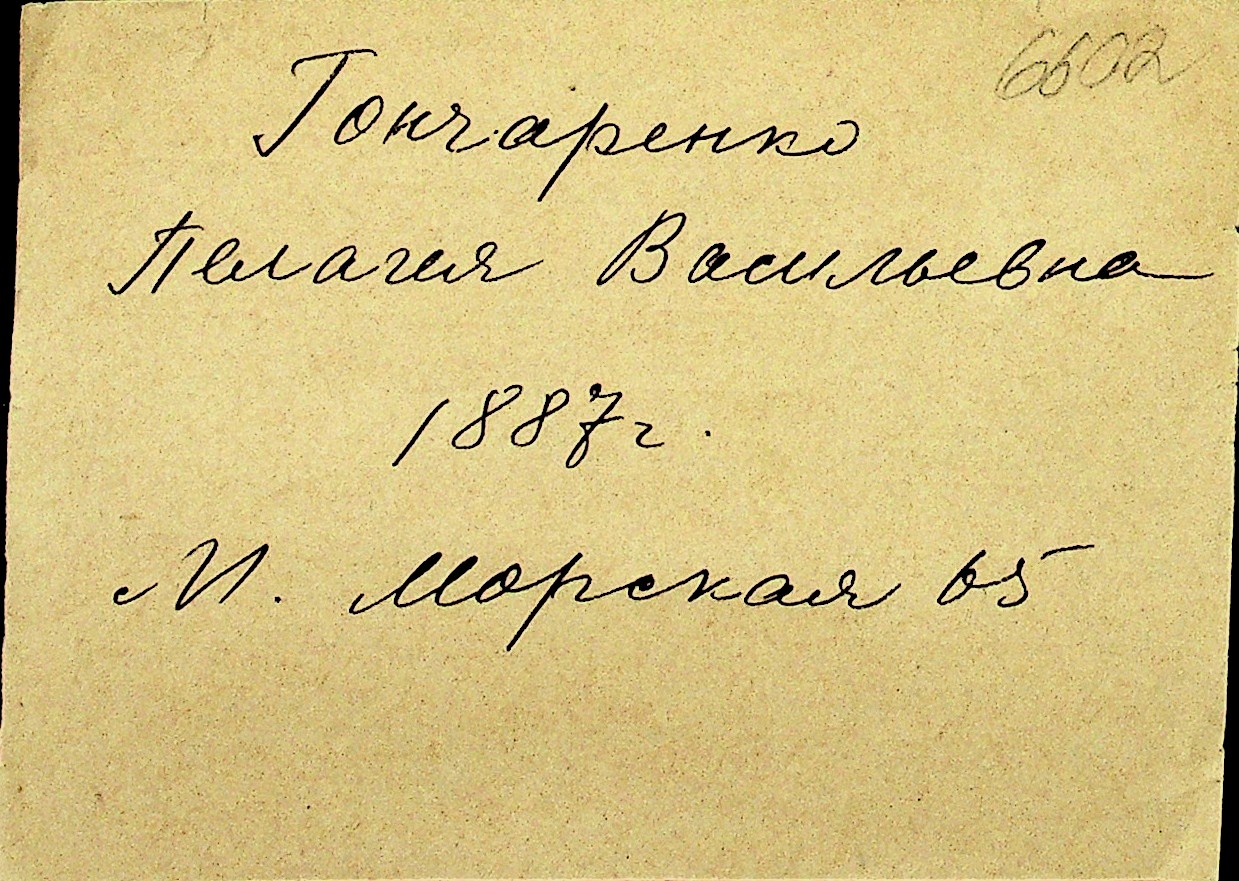 6602
Гончаренко
Пелагия Васильевна
1887г.
М. Морская 65